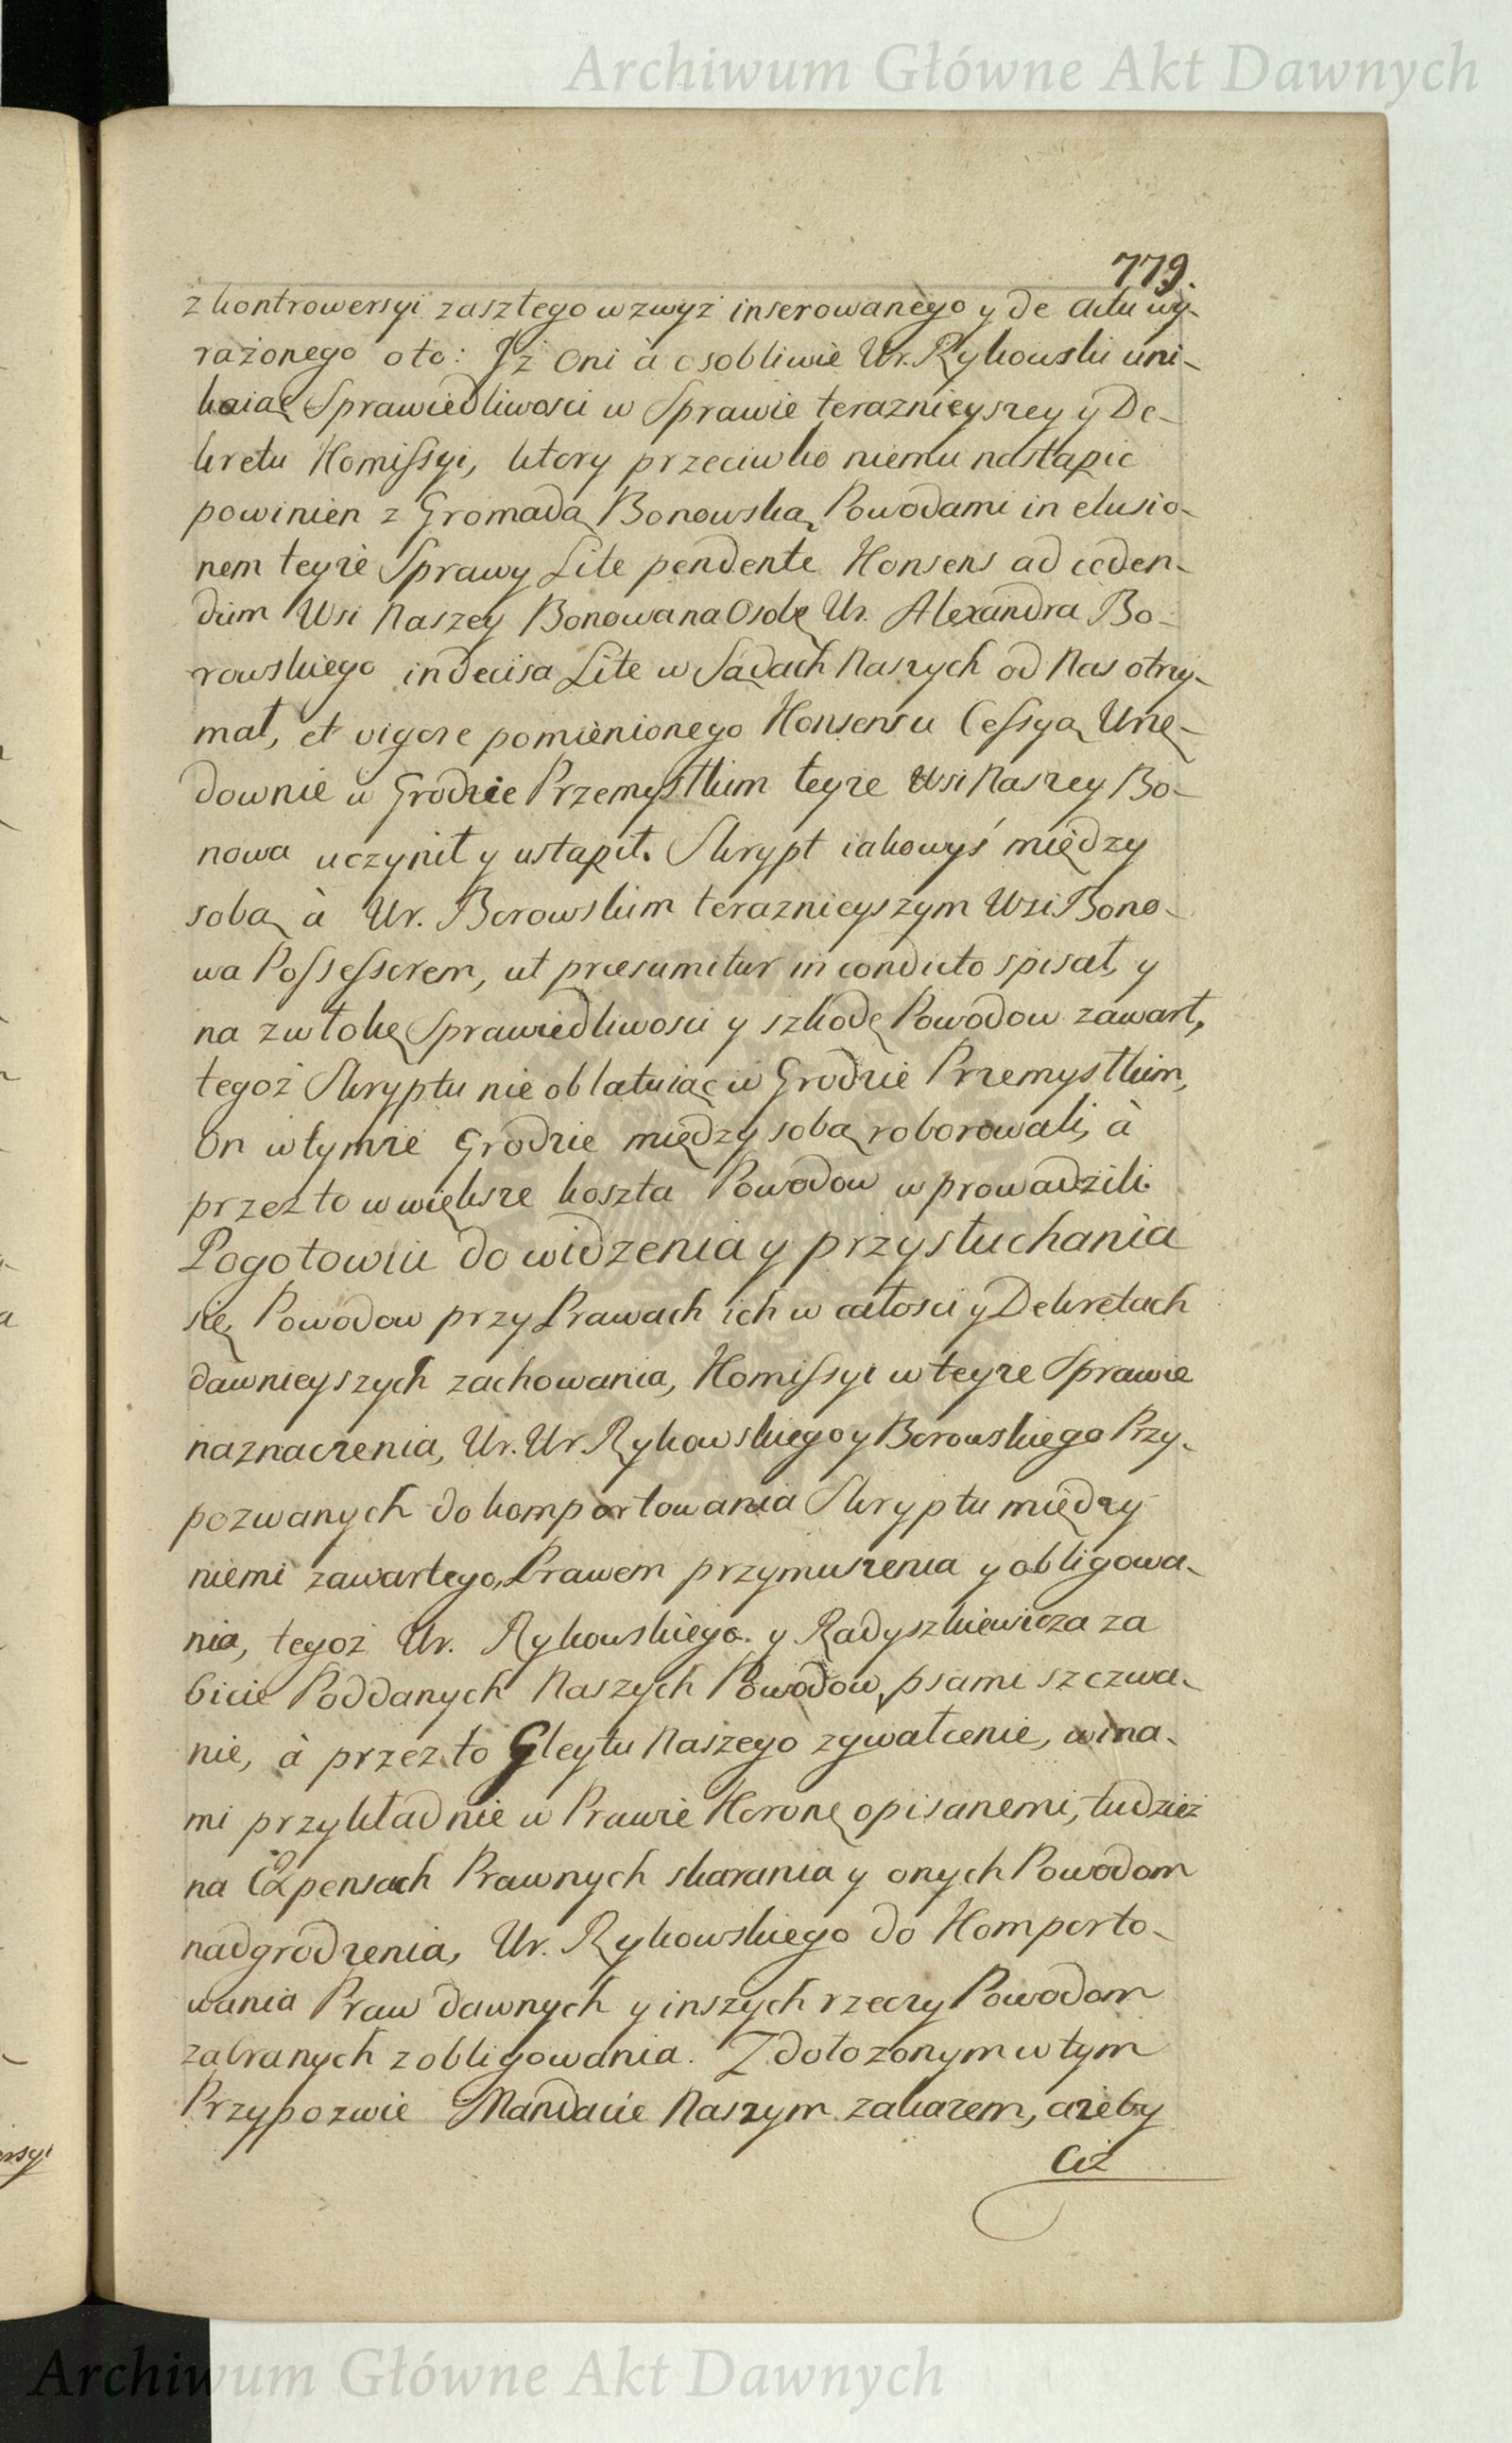 Archiwum Główne Akt Dawnych
779.
z kontrowersyi zaszłego wzwyż inserowanego y de actu wy-
rażonego oto: Jż oni à osobliwie Ur. Rykowski uni-
kaiąc Sprawiedliwosci w Sprawie teraznieyszey y De-
kretu Komissyi, ktory przeciwko niemu nastąpic
powinien z Gromadą Bonowską Powodami in elusio-
nem teyże Sprawy Lite pendente Konsens ad ceden-
dum Wsi Naszey Bonowa na Osobę Ur. Alexandra Bo-
rowskiego indecisa Lite w Sądach Naszych od Nas otrzy-
mał, et vigore pomienionego Konsensu Cessyą Urzę-
downie w Grodzie Przemyslkim teyże Wsi Naszey Bo-
nowa uczynił y ustąpił. Skrypt iakowyś między
sobą à Ur. Borowskim teraznieyszym Wsi Bono-
wa Possessorem, ut præsumitur in condicto spisał, y
na zwłokę Sprawiedliwosci y szkodę Powodow zawarł,
tegoż Skryptu nie oblatuiąc w Grodzie Przemyslkim,
On w tymże Grodzie między sobą roborowali, à
przez to w większe koszta Powodow wprowadzili.
Pogotowiu do widzenia y przysłuchania
się Powodow przy Prawach ich w całosci y Dekretach
dawnieyszych zachowania, Komissyi w teyże Sprawie
naznaczenia, Ur. Ur Rykowskiego y Borowskiego Przy-
pozwanych do komportowania Skryptu między
niemi zawartego, Prawem przymuszenia y obligowa-
nia, tegoż Ur. Rykowskiego. y Radyszkiewicza za
bicie Poddanych Naszych Powodow, psami szczwa-
nie, à przez to Gleytu Naszego zgwałcenie, wina-
mi przykładnie w Prawie Koronę opisanemi, tudzież
na Expensach Prawnych skarania y onych Powodom
nadgrodzenia, Ur. Rykowskiego do Komporto-
wania Praw dawnych y inszych rzeczy Powodom
zabranych zobligowania. Z dołozonym w tym
Przypozwie Mandacie Naszym zakazem, ażeby
Ciż
Archiwum Główne Akt Dawnych